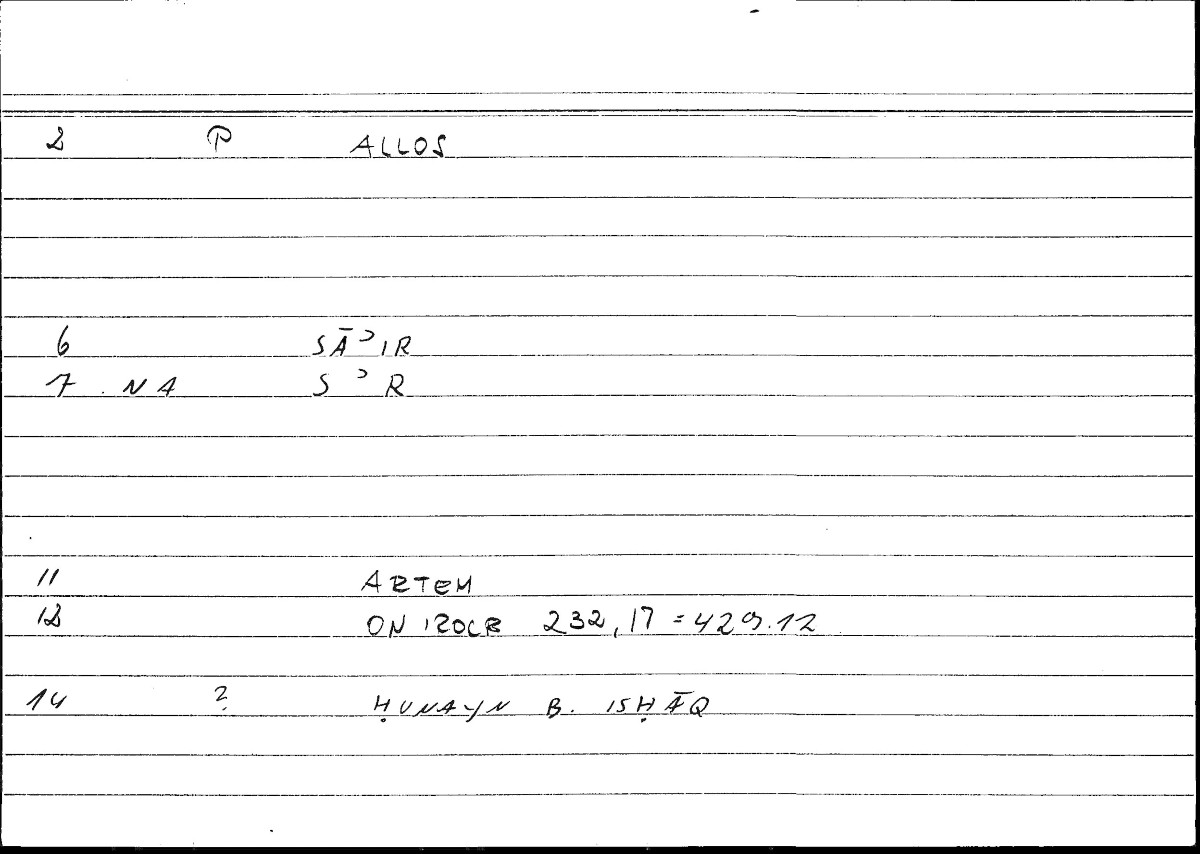 2 P ALLOS
6 SĀʾIR
7 . NA S ʾ R
11 ARTEM
12 ON 232, 17 = 429.12
14 ? ḤUNAYN B. ISḤĀQ